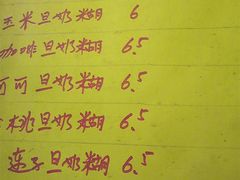 玉米旦奶糊 6
咖啡旦奶糊 6.5
可可旦奶糊 6.5
桃旦奶糊 6.5
莲子旦奶糊 6.5